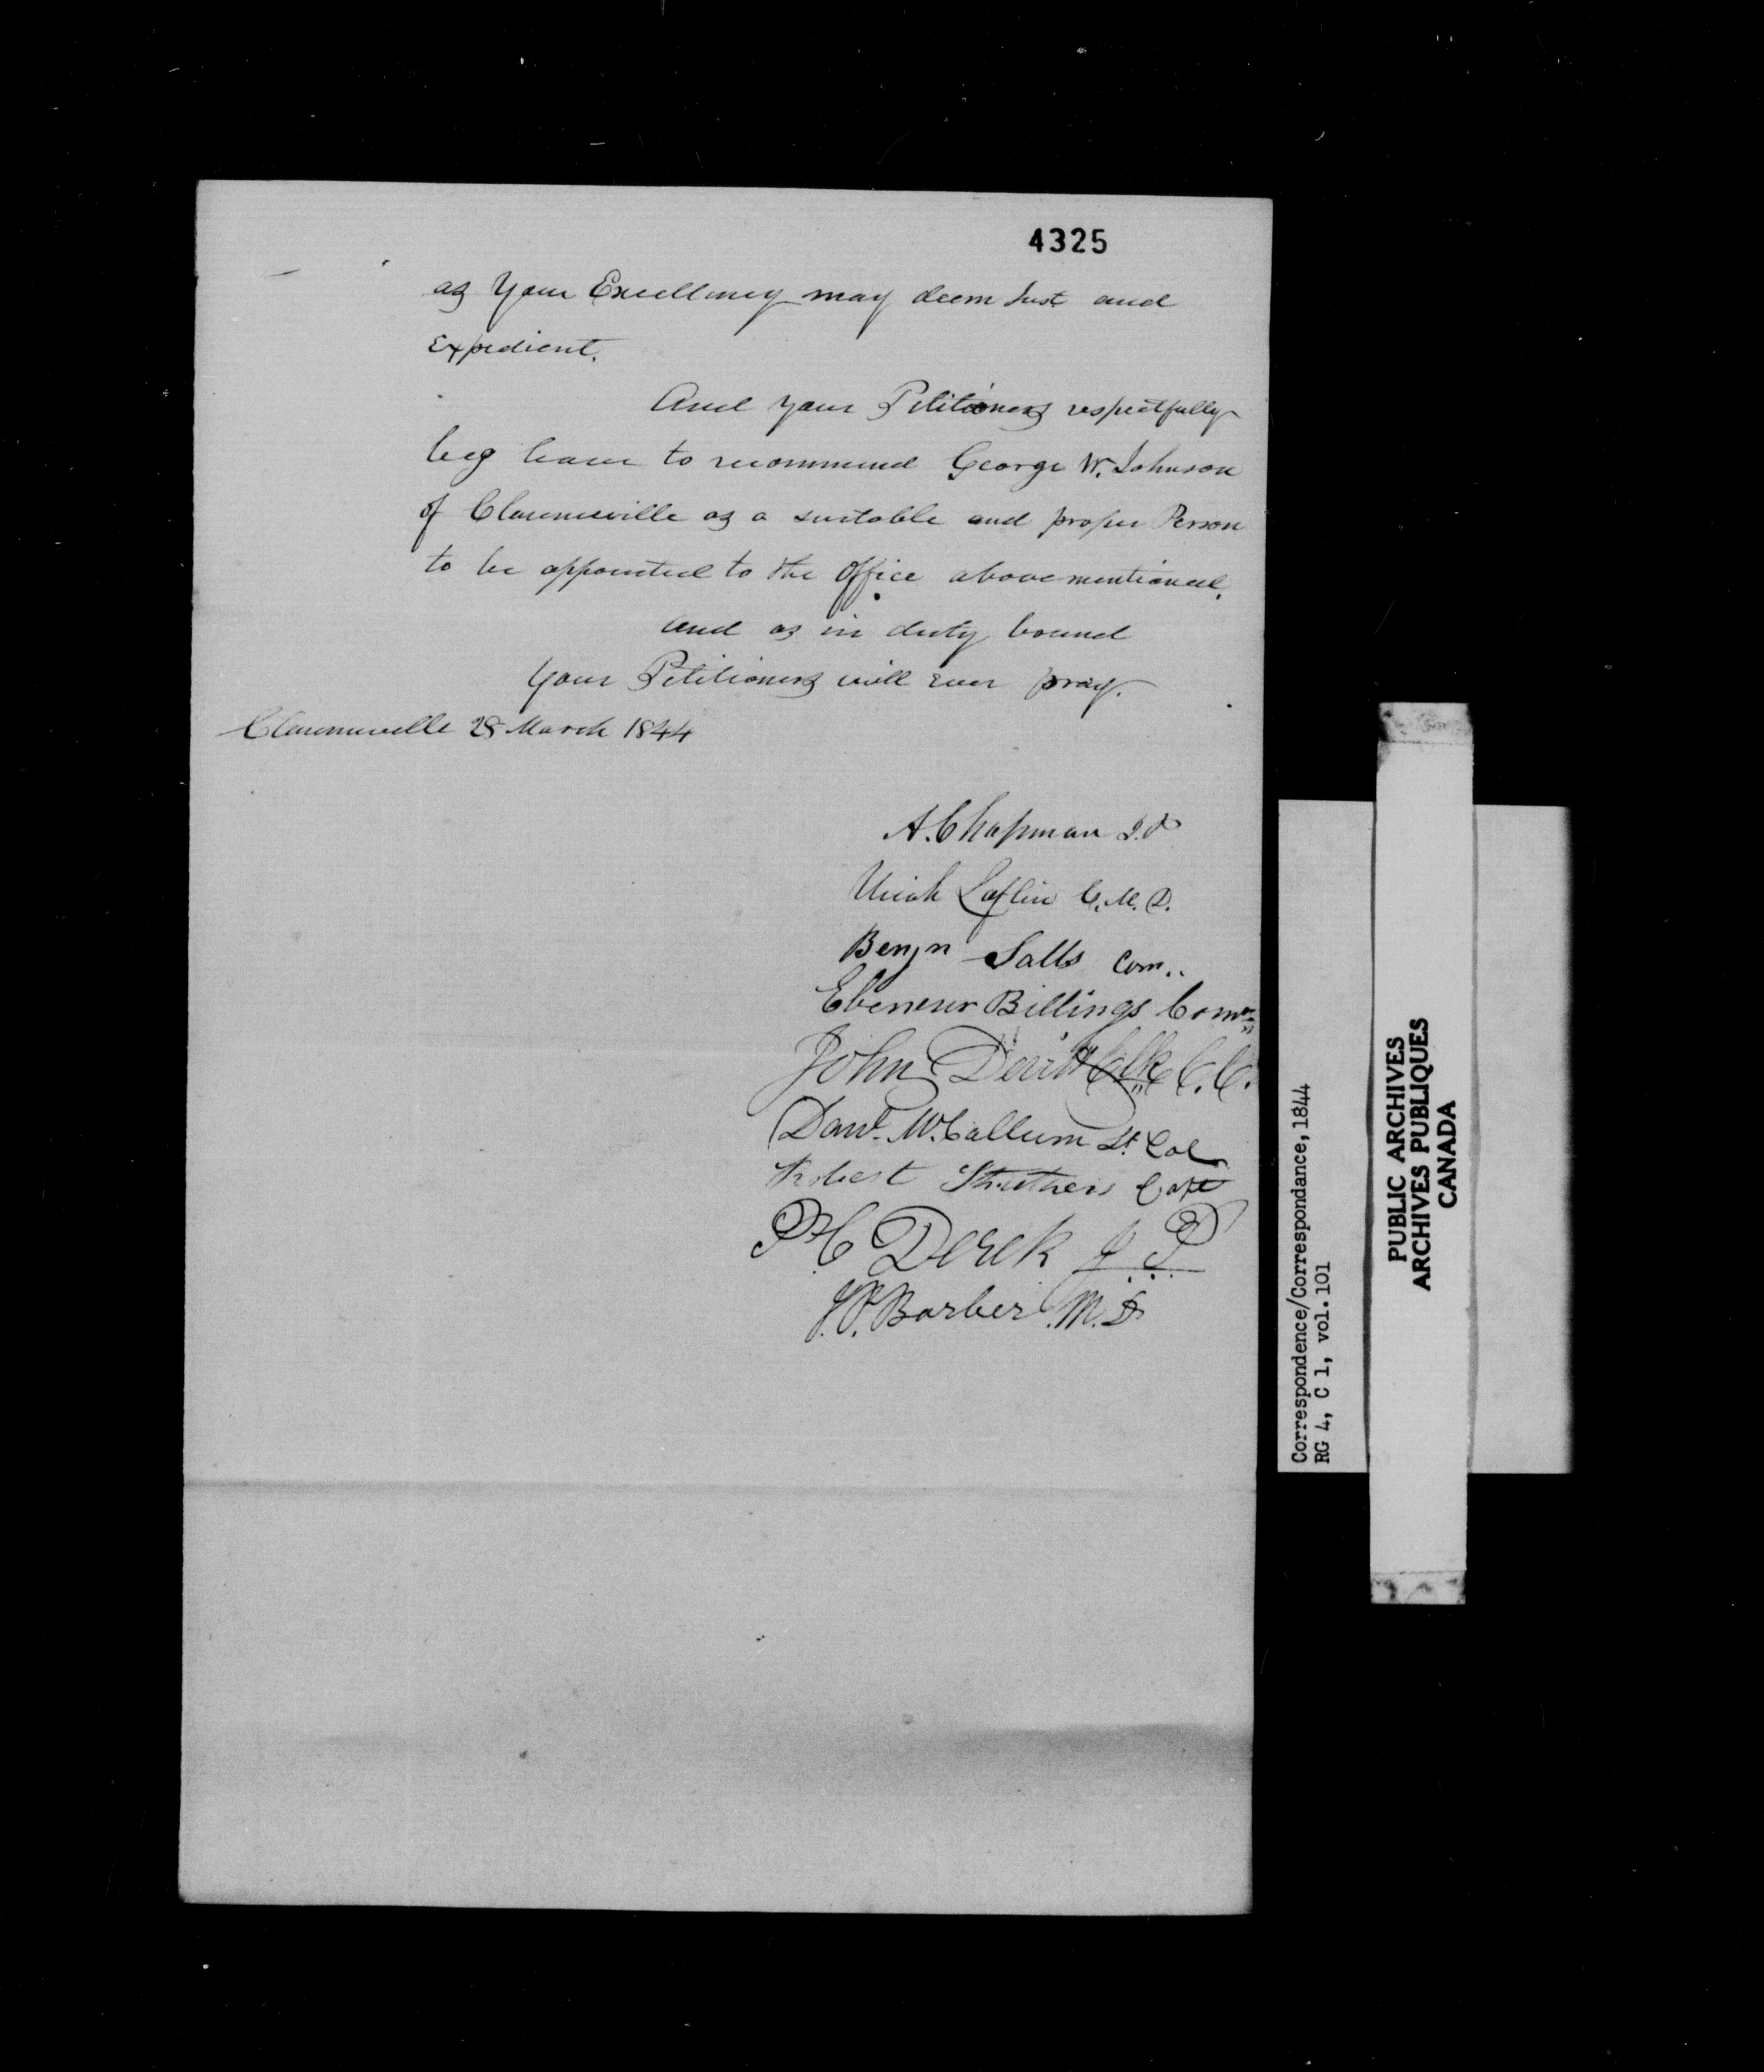 4325
as Your Excellency may deem Just and
Expedient.
And your Petitioners respectfully
beg leave to recommend George W. Johnson
of Clarenceville as a suitable and proper Person
to be appointed to the Office above mentioned.
and as in duty bound
Your Petitioners will ever pray.
Clarenceville 28 March 1844
A. Chapman J.P
Uriah Laflin C.M.D.
Benjn Salls Com..
Ebenezer Billings Comr
John Derick C.C.
Danl. McCallum Lt. Col
Robert Struthers Capt
P H Derek J P
Barber M.D
Correspondence/Correspondance, 1844
RG 4, C 1, vol. 101
PUBLIC ARCHIVES
ARCHIVES PUBLIQUES
CANADA